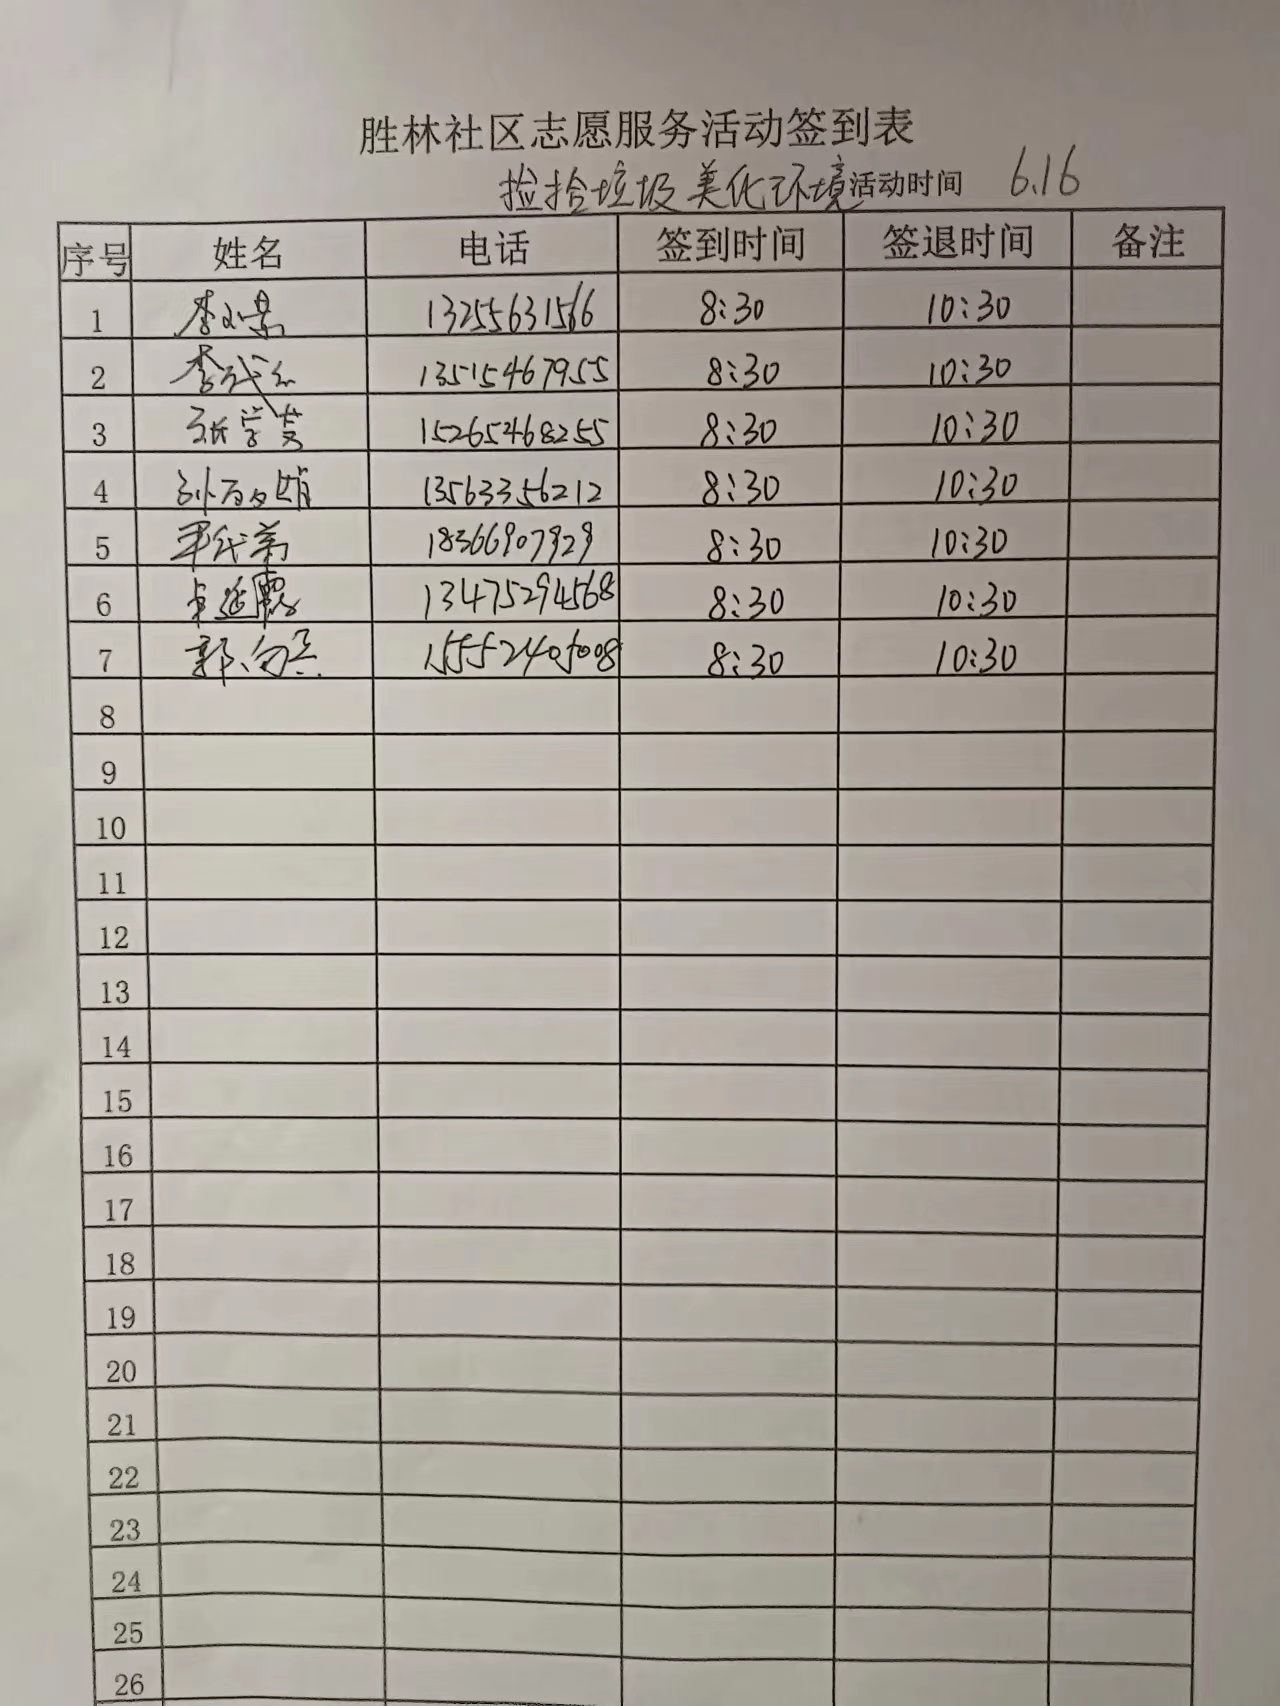 胜林社区志愿服务活动签到表
捡拾垃圾美化环境活动时间 6.16
序号 姓名 电话 签到时间 签退时间 备注
1 李 13255631566 8:30 10:30
2 李代 13515467955 8:30 10:30
3 张学英 15265468255 8:30 10:30
4 孙 13563356212 8:30 10:30
5 18366907929 8:30 10:30
6 卓延霞 13475294568 8:30 10:30
7 郭 15552405008 8:30 10:30
8
9
10
11
12
13
14
15
16
17
18
19
20
21
22
23
24
25
26